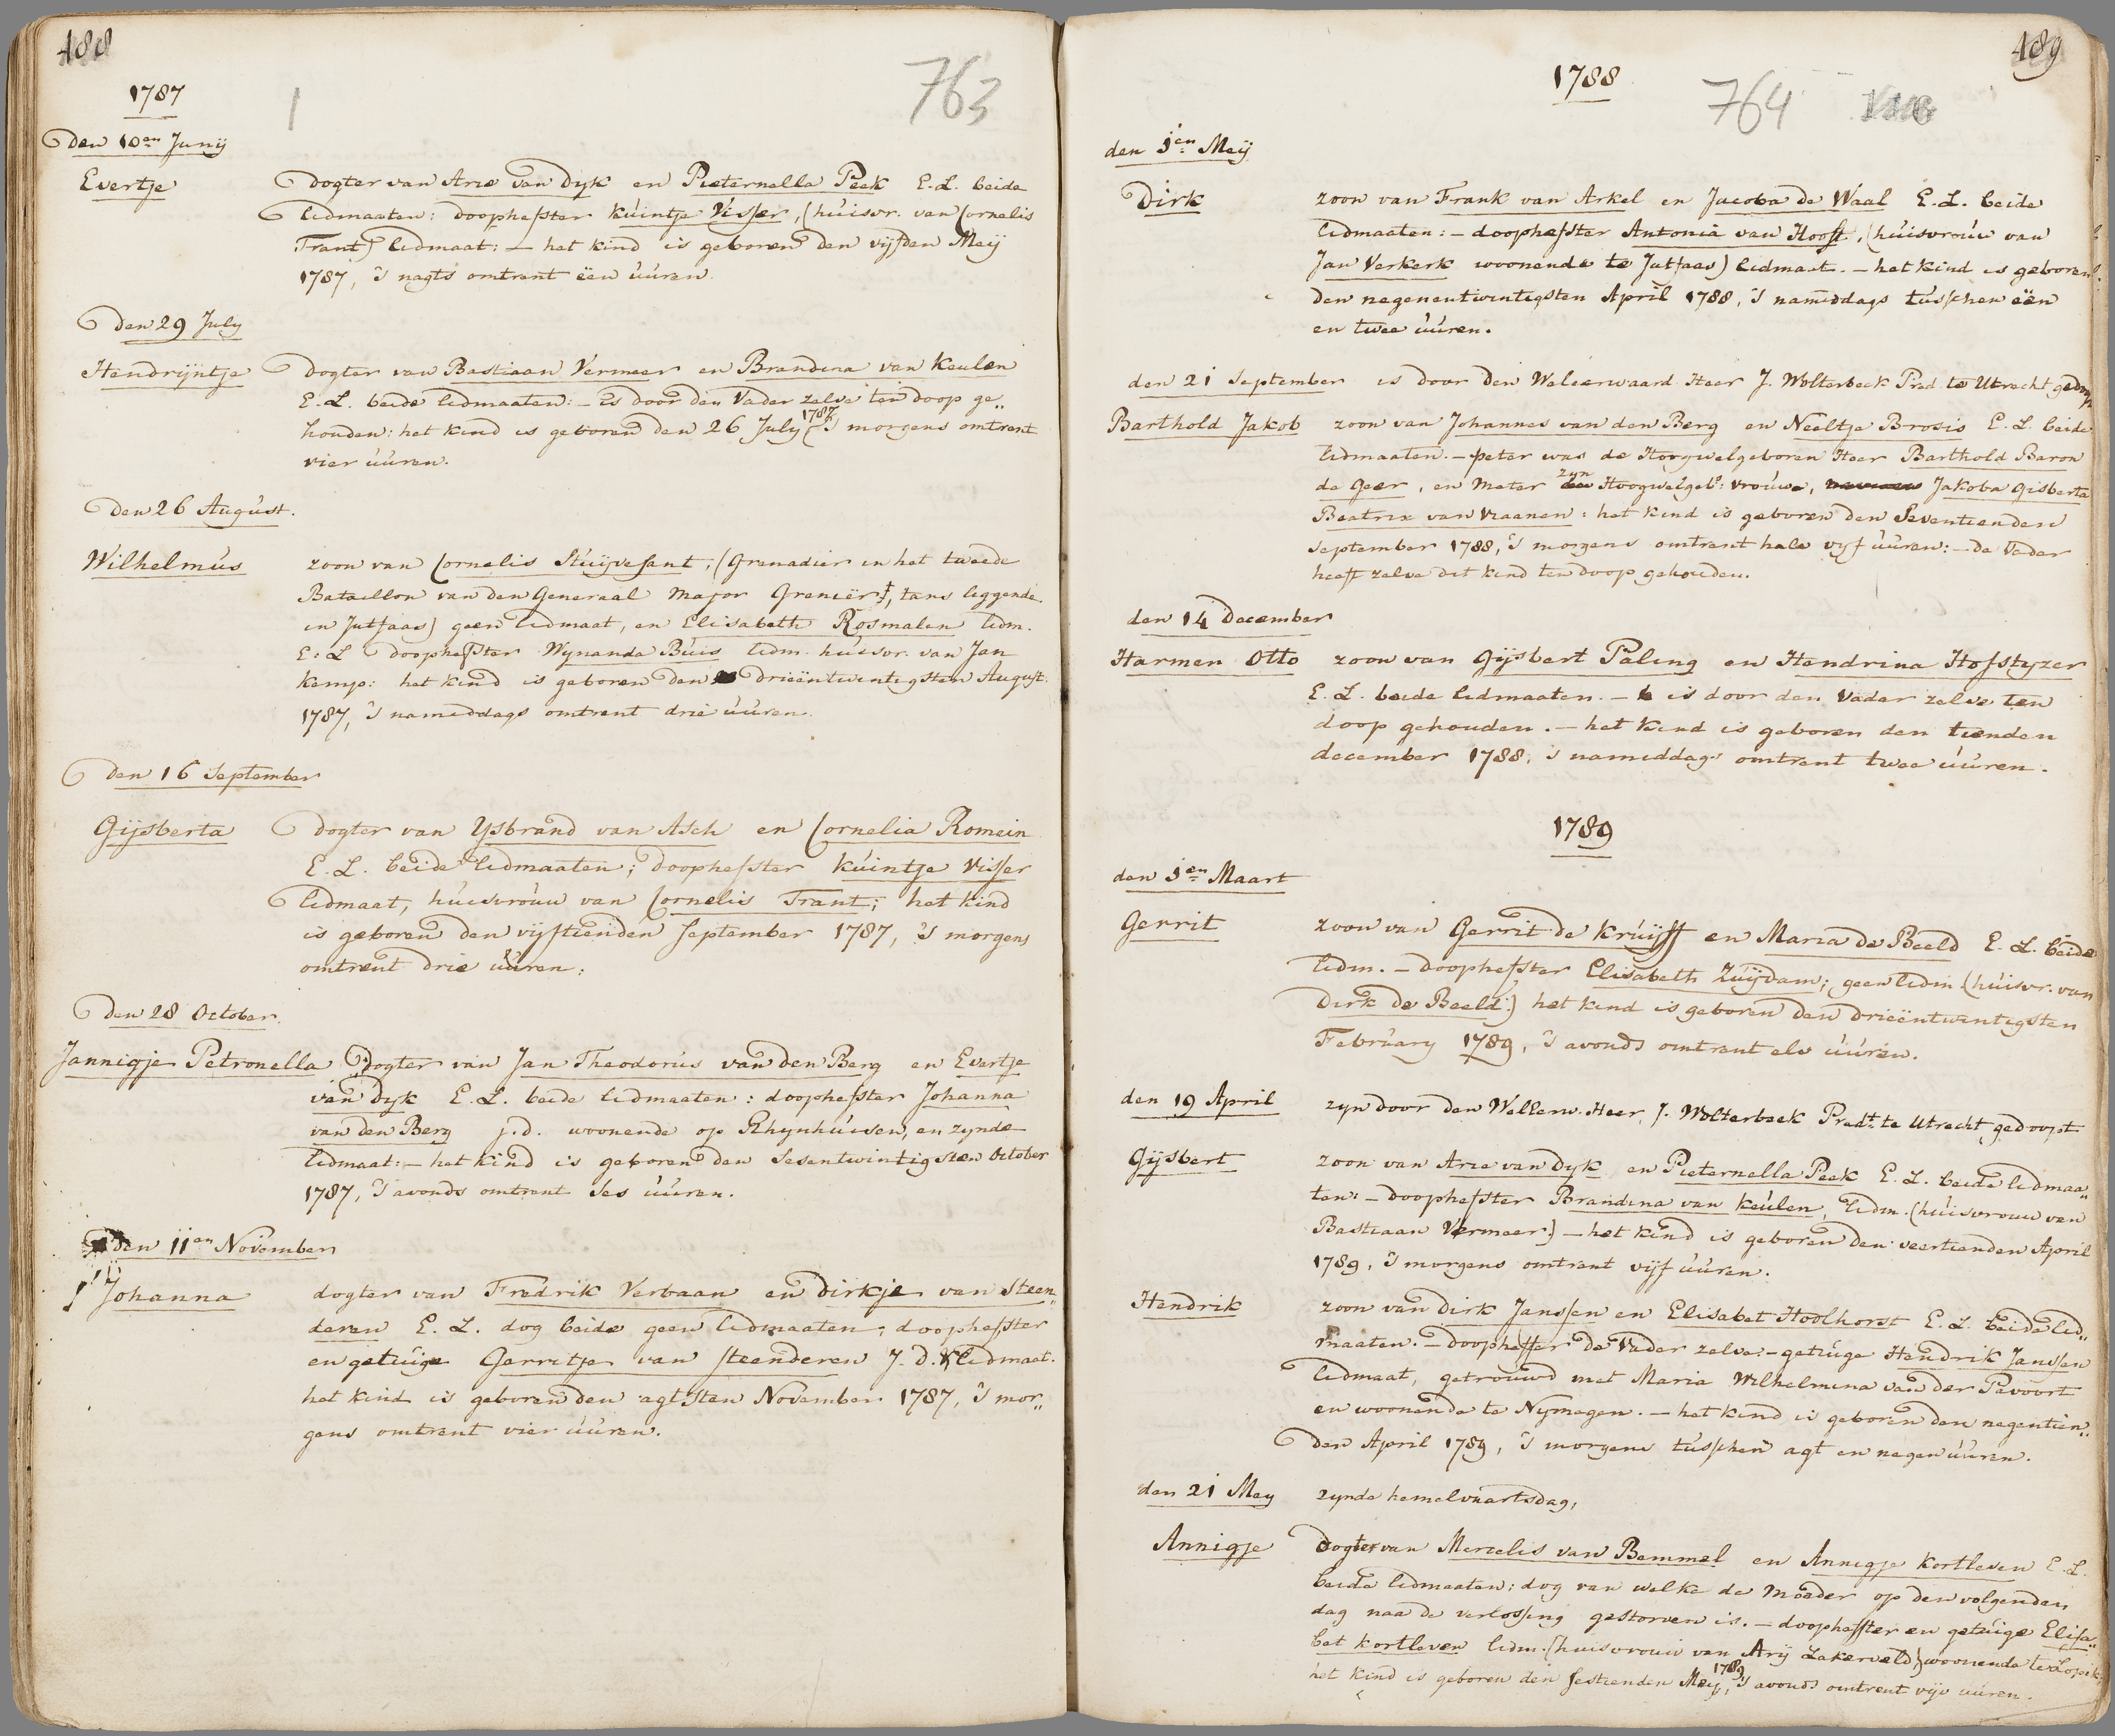 488
763
1787
1
den 10en Junij
Evertje
dogter van Arie van Dijk en Pieternella Peek E.L. beide
lidmaaten: doophefster Kúintje Visser, (húisvr. van Cornelis
Trant) lidmaat: — het kind is geboren den vijfden Meij
1787, 's nagts omtrent ëen úúren.
den 29 July
Hendrijntje
dogter van Bastiaan Vermeer en Brandina van Keulen
E.L. beide lidmaaten: — is door den Vader zelve ten doop ge„
houden: het kind is geboren den 26 July 1787 's morgens omtrent
vier úúren.
den 26 August.
Wilhelmús
zoon van Cornelis Stúijvesant, (Grenadier in het tweede
Bataillon van den Generaal Major Grenier, tans leggende
in Jutfaas) geen lidmaat, en Elisabeth Rosmalen lidm.
E:L doophefster Wynanda Búis lidm. húisvr. van Jan
Kemp: het kind is geboren den drieëntwintigsten August:
1787, 's namiddags omtrent drie úúren.
den 16 September
Gijsberta
dogter van Ysbrand van Asch en Cornelia Romein
E.L. beide lidmaaten; doophefster Kúintje Visser
lidmaat, húisvróúw van Cornelis Trant; het kind
is geboren den vijftienden September 1787, 's morgens
omtrent drie úúren:
den 28 October.
Jannigje Petronella
dogter van Jan Theodorús van den Berg en Evertje
van Dyk E.L. beide lidmaaten: doophefster Johanna
van den Berg j.d. woonende op Rhynhúisen, en zynde
lidmaat: — het kind is geboren den Sesentwintigsten October
1787, 's avonds omtrent ses úúren.
den 11en November
Johanna
dogter van Fredrik Verbaan en Dirkje van Steen„
deren E.L. dog beide geen lidmaaten; doophefster
en getúige Gerritje van Steenderen J.D. lidmaat.
het kind is geboren den agtsten November 1787, 's mor„
gens omtrent vier úúren.
489
1788
764
den 1en Meij
Dirk
zoon van Frank van Arkel en Jacoba de Waal E.L. beide
lidmaaten: — doophefster Antonia van Hooft, (húisvróúw van
Jan Verkerk woonende te Jutfaas) lidmaat. — het kind is geboren
den negenentwintigsten April 1788, 's namiddags tússchen ëën
en twee úúren.
den 21 September is door den Weleerwaard Heer J. Wolterbeek Pred. te Utrecht gedoopt
Barthold Jakob
zoon van Johannes van den Berg en Neeltje Brosis E.L. beide
lidmaaten. — peter was de Hoogwelgeboren Heer Barthold Baron
de Geer, en Meter zyn Hoogwelgeb: vróúwe, Jakoba Gisberta
Beatrix van Vraanen: het kind is geboren den Seventienden
September 1788, 's morgens omtrent halv vijf úúren: — de Vader
heeft zelve dit kind ten doop gehouden.
den 14 December
Harmen Otto
zoon van Gijsbert Paling en Hendrina Hofstyzer
E.L. beide lidmaaten. — is door den Vader zelve ten
doop gehouden. — het kind is geboren den tienden
december 1788, 's namiddags omtrent twee úúren.
1789
den 1en Maart
Gerrit
zoon van Gerrit de Krúijff en Maria de Beeld E.L. beide
lidm. — doophefster Elisabeth Zúijdam; geen lidm (húisvr. van
Dirk de Beeld:) het kind is geboren den drieëntwintigsten
Februáry 1789, 's avonds omtrent elv úúren.
den 19 April
zyn door den Wellerw. Heer J. Wolterbeek Predt. te Utrecht gedoopt
Gijsbert
zoon van Arie van Dyk en Pieternella Peek E.L. beide lidmaa„
ten: — doophefster Brandina van Keúlen, lidm. (húisvrouw van
Bastiaan Vermeer) — het kind is geboren den veertienden April
1789, 's morgens omtrent vijf úúren.
Hendrik
zoon van Dirk Janssen en Elisabet Hoolhorst E.L. beide lid„
maaten. — doopheffer de Vader zelve: — getúige Hendrik Janssen
lidmaat, getrouwd met Maria Wilhelmina van der Pavoort
en woonende te Nymegen. — het kind is geboren den negentien„
den April 1789, 's morgens tússchen agt en negen úúren.
den 21 Mey
zynde hemelvaartsdag,
Annigje
dogter van Mercelis van Bemmel en Annigje Kortleven E.L.
beide lidmaaten: dog van welke de Moeder op den volgenden
dag naa de verlossing gestorven is. — doophefster en getúige Elisa„
bet Kortleven lidm. (huisvrouw van Arij Lakerveld) woonende te Lopik:
het kind is geboren den sestienden Mey 1789, 's avonds omtrent vijv uuren.